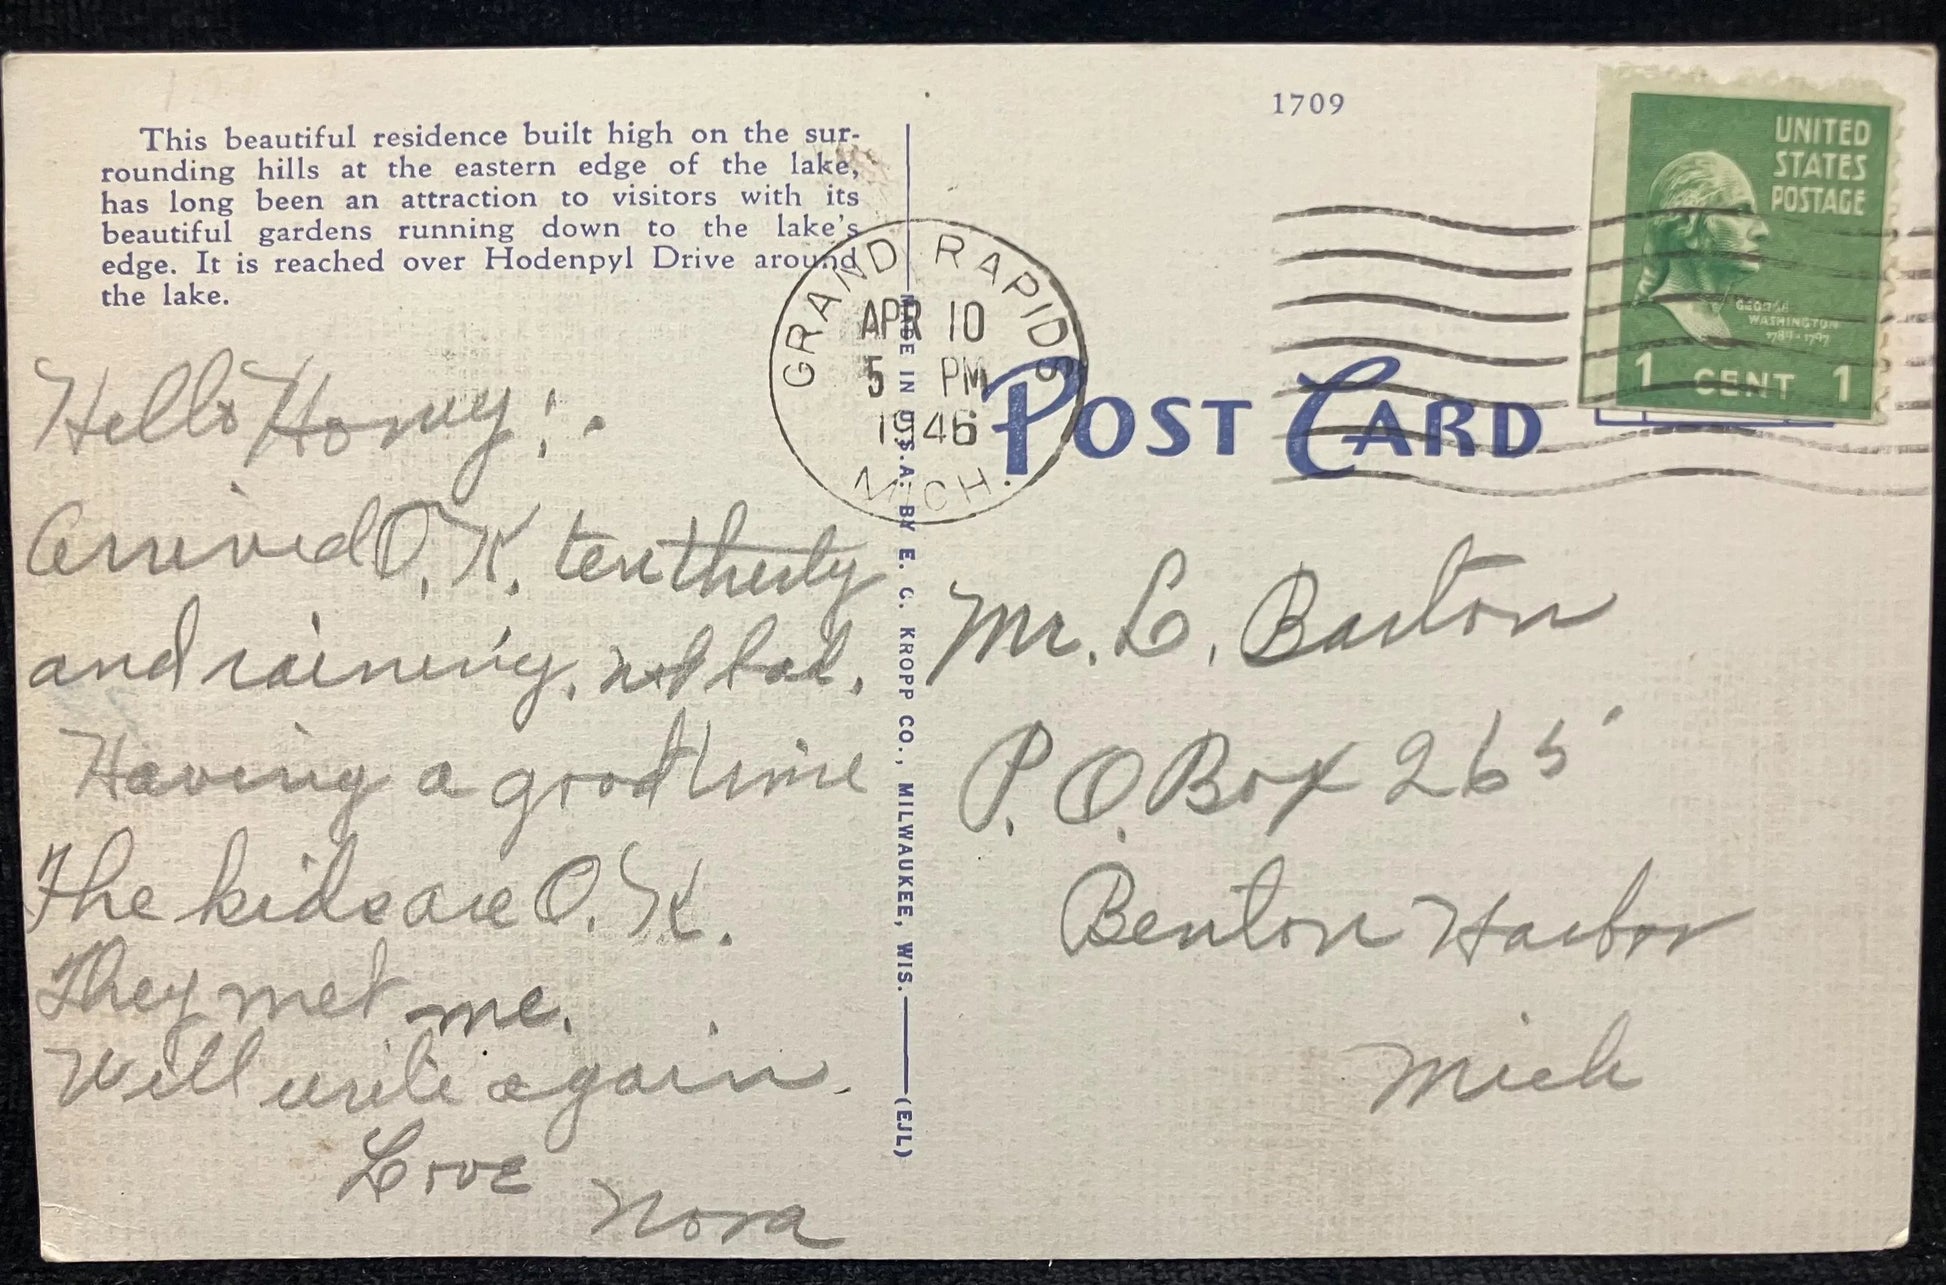 This beautiful residence built high on the sur-
rounding hills at the eastern edge of the lake,
has long been an attraction to visitors with its
beautiful gardens running down to the lake's
edge. It is reached over Hodenpyl Drive around
the lake.
Hello Honey:.
Arrived O.K. ten thirty
and raining. not bad.
Having a good time
The kids are O.K.
They met me.
Will write again.
Love
Nora
MADE IN U.S.A. BY E. C. KROPP CO., MILWAUKEE, WIS. (EJL)
GRAND RAPIDS
APR 10
5 PM
1946
MICH.
1709
POST CARD
UNITED
STATES
POSTAGE
GEORGE
WASHINGTON
1789-1797
1 CENT 1
Mr. L. Barton
P.O. Box 265
Benton Harbor
Mich